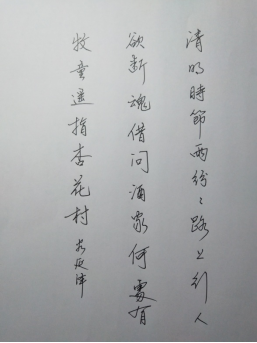 清明時節雨紛〻路上行人
欲断魂借问酒家何處有
牧童遥指杏花村